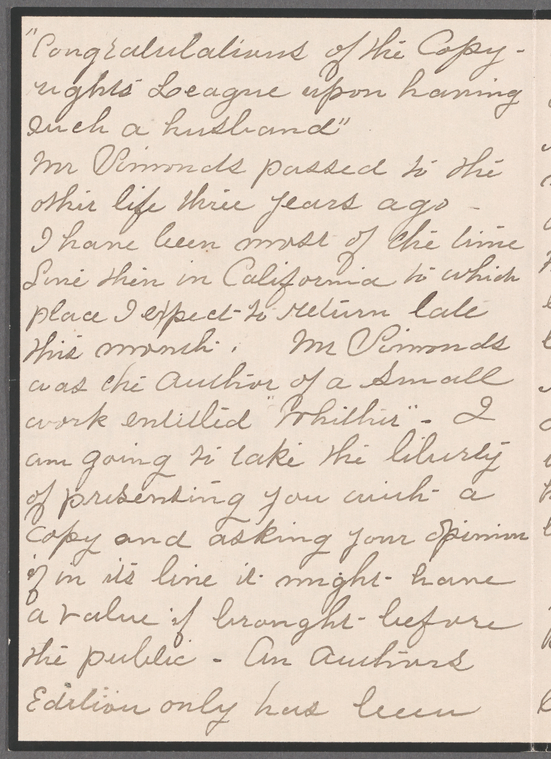 "Congratulations of the Copy-
rights League upon having
such a husband"
Mr Simonds passed to the
other life three years ago -
I have been most of the time
Sine then in California to which
place I expect to return late
this month. Mr Simonds
was the Author of a Small
work entitled "Whither" - I
am going to take the liberty
of presenting you with a
Copy and asking your opinion
if in its line it might have
a value if brought before
the public - An Authors
Edition only has been